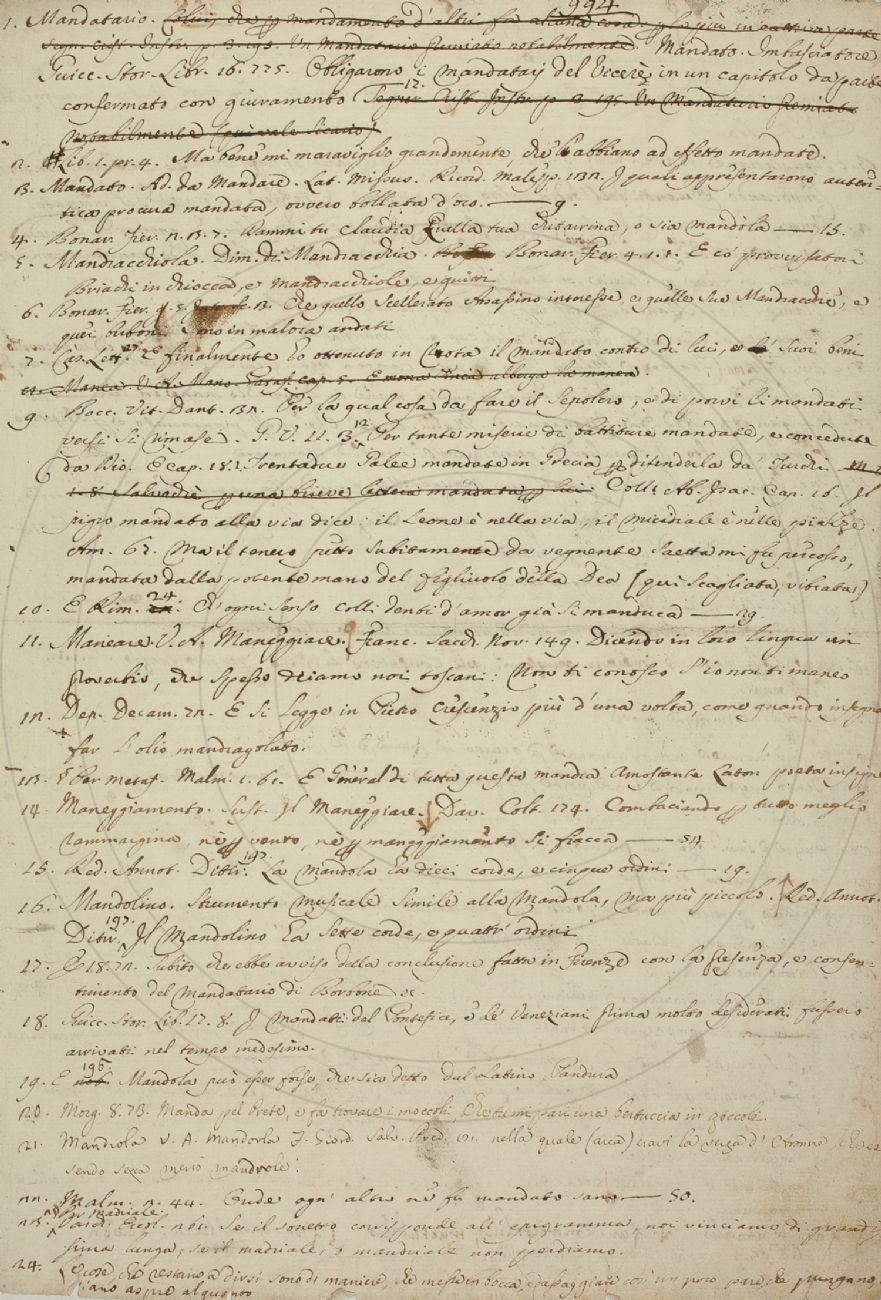 994
1. Mandatario. Colui, che per mandamento d'altri fa alcuna cosa, e per lo più in cattiva parte
Segn. Crist. Instr. p. 3. 195. Un Mandatario premiato notabilmente. Mandato. Imbasciatore
Guicc. Stor. Libr. 16. 775. Obligarono i mandatarj del Vicerè in un capitolo da parte
confermato con giuramento 12. Segner. Crist. Instr. p. 3. 195. Un Mandatario premiato
notabilmente (qui vale Sicario)
2. Lib. 1. pr. 4. Ma bene mi maraviglio grandemente, che l'abbiano ad effetto mandate.
3. Mandato. Ad. da Mandare. Lat. Missus. Ricord. Malesp. 132. I quali appresentarono auten-
tica procura mandata, ovvero bollata d'oro. — 9.
4. Bonar. Fier. 2. 3. 7. Dammi tu Claudia Quella tua Chitarrina, o sia mandòla — 15.
5. Mandracchiola. Dim. di Mandracchia. Bonar. Fier. 4. 1. 1. E co' provvisatori
Briachi in chiocca, e mandracchiole, e guitti
6. Bonar. Fier. Che quello Scellerato Assassino intenesse, e quelle Sue Mandracchie, e
quei buboni Sono in malora andati
7. Car. Lett. 27. E finalmente ho ottenuto in Ruota il mandato contro di lui, e i Suoi beni
Manca V. A. Mano.
9. Bocc. Vit. Dant. 32. Per la qual cosa da fare il Sepolcro, e di porvi li mandati
versi Si rimase. G. V. 11. 3. 12. Per tante miserie di battiture mandate, e concedute
da Dio. E cap. 18. 1. Trentadue Galee mandate in Grecia per difenderla da' Turchi
1. 8. Salvadiè per una breve lettera mandata per lui. Coll. Ab. Isac. Cap. 16. Il
pigro mandato alla via dice: il Leone è nella via, il micidiale è nelle piazze.
Am. 67. Ma il tenero petto Subitamente da vegnente Saetta mi fu percosso,
mandata dalla potente mano del figliuolo della Dea (qui Scagliata, vibrata)
10. E Rim. 24. Ch'ogni Senso colli denti d'amor già Si manduca — 29.
11. Maneare. V. A. Maneggiare. Franc. Sacch. Nov. 149. Dicendo in loro lingua un
proverbio, che Spesso diciamo noi toscani: Non ti conosco S'io non ti maneo
12. Dep. Decam. 72. E Si legge in Pietro Crescenzio più d'una volta, come quando insegna
far l'olio mandragolato.
13. § Per metaf. Malm. 1. 61. E General di tutta questa mandria Amostante Laton poeta insigne
14. Maneggiamento. Sust. Il Maneggiare. Dav. Colt. 174. Combaciando per tutto meglio
rammargina, nè per vento, nè per maneggiamento Si fiacca — 54
15. Red. Annot. Ditir. La Mandola ha dieci corde, e cinque ordini — 19.
16. Mandolino. Strumento musicale Simile alla Mandola, ma più piccolo. Red. Annot.
Ditir. 195. Il Mandolino ha Sette corde, e quattr'ordini
17. E 18. 72. Subito che ebbe avviso della conclusione fatta in Firenze con la presenza, e consen-
timento del Mandatario di Borbone ec.
18. Guicc. Stor. Lib. 17. 8. I Mandati del Pontefice, e de' Veneziani prima molto desiderati fussero
arrivati nel tempo medesimo.
19. E 195. Mandola può esser forse, che sia detto dal Latino Pandura
20. Morg. 8. 73. Manda pel Prete, e fa trovare i moccoli, Che tu mi pari una bertuccia in zoccoli.
21. Mandrola V. A. Mandorla F. Giord. Salv. Pred. 61. nella quale (arca) ravi la verga d'Aronne,
sendo secca menò mandrole.
22. Malm. 2. 44. Onde ogn'altro ne fu mandato sano — 50.
23. Per Madriale. Varch. Ercol. 261. Se il sonetto corrisponde all'epigramma, noi vinciamo di grandis-
sima lunga, se il madriale, o mandriale non perdiamo.
24. che restano a dirsi sono di maniera, che messe in bocca, e assaggiate così un poco, pare che pungano,
siano aspre alquanto